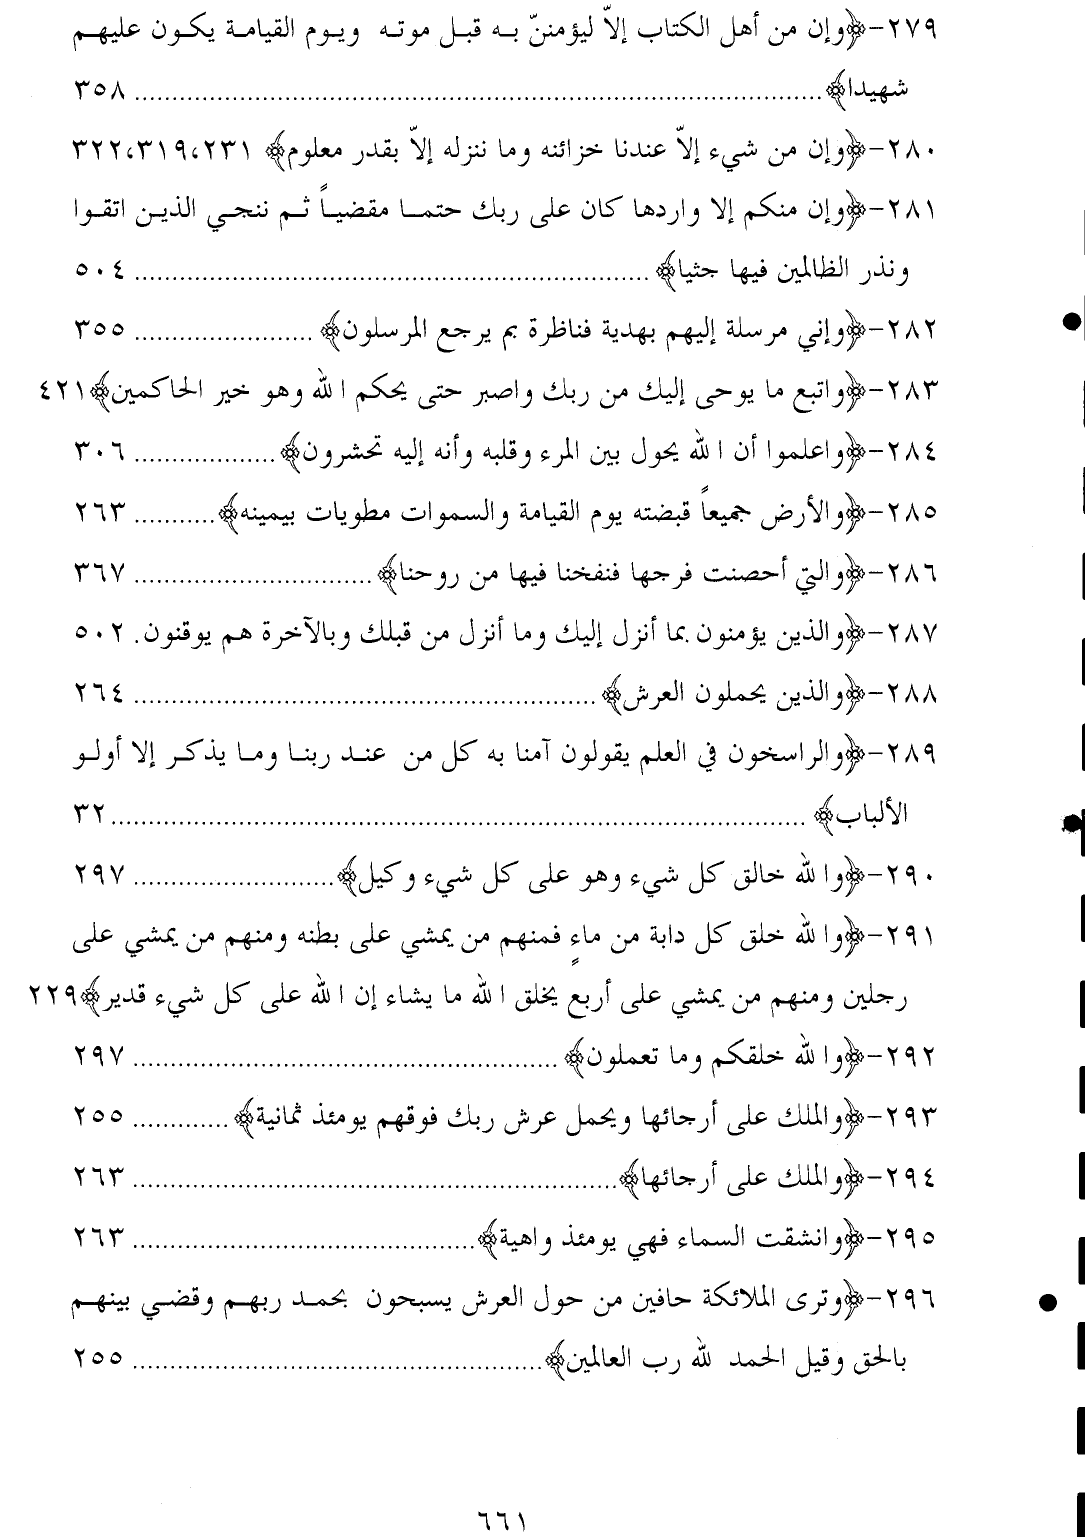 ٢٧٩-﴿وإن من أهل الكتاب إلاّ ليؤمننّ به قبل موته ويوم القيامة يكون عليهم
شهيدا﴾ ........................................ ٣٥٨
٢٨٠-﴿وإن من شيء إلاّ عندنا خزائنه وما ننزله إلاّ بقدر معلوم﴾ ٣٢٢،٣١٩،٢٣١
٢٨١-﴿وإن منكم إلا واردها كان على ربك حتما مقضياً ثم ننجي الذين اتقوا
ونذر الظالمين فيها جثيا﴾ .............................. ٥٠٤
٢٨٢-﴿وإني مرسلة إليهم بهدية فناظرة بم يرجع المرسلون﴾ .................... ٣٥٥
٢٨٣-﴿واتبع ما يوحى إليك من ربك واصبر حتى يحكم الله وهو خير الحاكمين﴾٤٢١
٢٨٤-﴿واعلموا أن الله يحول بين المرء وقلبه وأنه إليه تحشرون﴾ ................ ٣٠٦
٢٨٥-﴿والأرض جميعاً قبضته يوم القيامة والسموات مطويات بيمينه﴾ ........... ٢٦٣
٢٨٦-﴿والتي أحصنت فرجها فنفخنا فيها من روحنا﴾ ......................... ٣٦٧
٢٨٧-﴿والذين يؤمنون بما أنزل إليك وما أنزل من قبلك وبالآخرة هم يوقنون. ٥٠٢
٢٨٨-﴿والذين يحملون العرش﴾ .............................. ٢٦٤
٢٨٩-﴿والراسخون في العلم يقولون آمنا به كل من عند ربنا وما يذكر إلا أولو
الألباب﴾ ........................................ ٣٢
٢٩٠-﴿والله خالق كل شيء وهو على كل شيء وكيل﴾ ...................... ٢٩٧
٢٩١-﴿والله خلق كل دابة من ماءٍ فمنهم من يمشي على بطنه ومنهم من يمشي على
رجلين ومنهم من يمشي على أربع يخلق الله ما يشاء إن الله على كل شيء قدير﴾٢٢٩
٢٩٢-﴿والله خلقكم وما تعملون﴾ .............................. ٢٩٧
٢٩٣-﴿والملك على أرجائها ويحمل عرش ربك فوقهم يومئذ ثمانية﴾ ............. ٢٥٥
٢٩٤-﴿والملك على أرجائها﴾ .............................. ٢٦٣
٢٩٥-﴿وانشقت السماء فهي يومئذ واهية﴾ .............................. ٢٦٣
٢٩٦-﴿وترى الملائكة حافين من حول العرش يسبحون بحمد ربهم وقضي بينهم
بالحق وقيل الحمد لله رب العالمين﴾ .............................. ٢٥٥
٦٦١